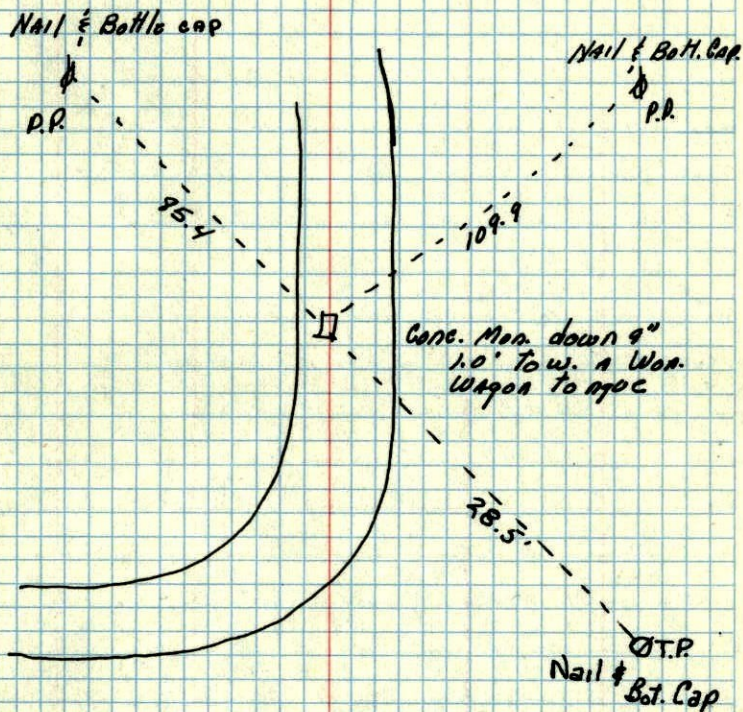 Nail & Bottle cap
P.P.
Nail & Bott. Cap.
P.P.
95.4
109.9
Conc. Mon. down 9"
1.0' To W.
wagon tongue
28.5
T.P.
Nail &
Bot. Cap